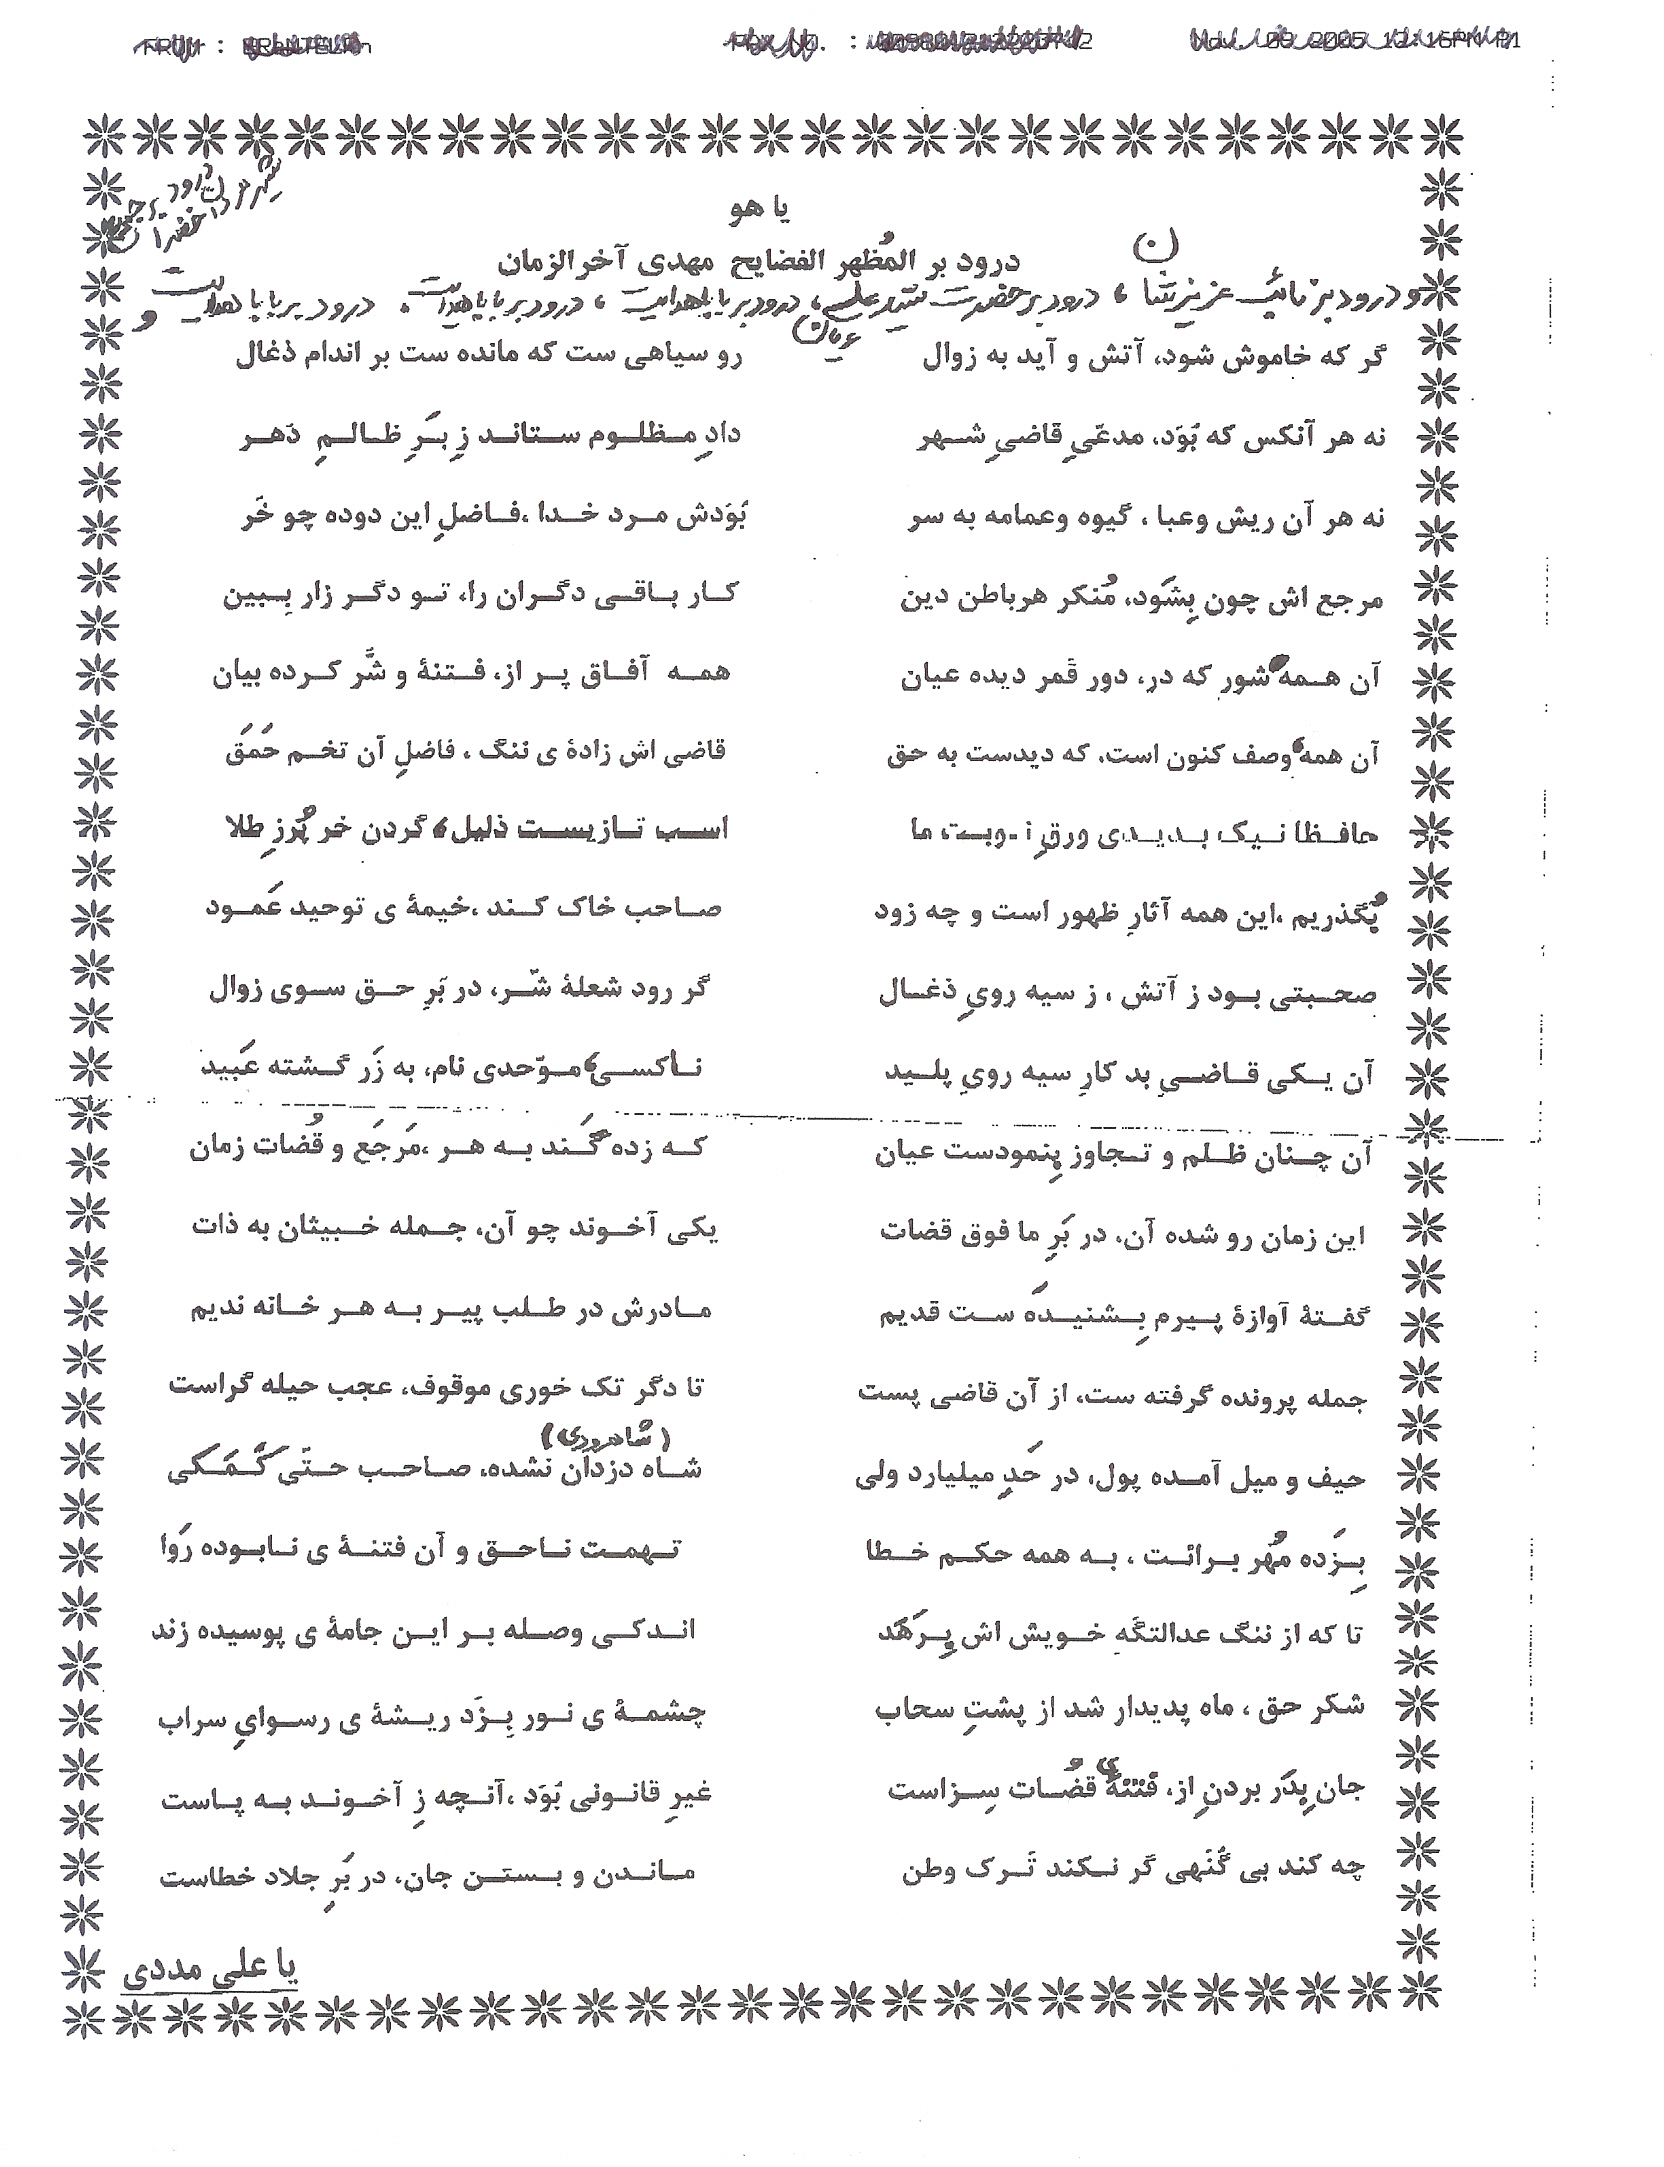 یا هو
درود بر المُظهر الفضایح مهدی آخرالزمان
و درود بر نائب عزیزشان، درود بر حضرت سید علی عریان، درود بر بابا هدایت، درود بر بابا هدایت. درود بر بابا هدایت و
گر که خاموش شود، آتش و آید به زوال رو سیاهی ست که مانده ست بر اندام ذغال
نه هر آنکس که بُوَد، مدعّیِ قاضیِ شـهر دادِ مـظلـوم ستـانـد زِ بَـرِ ظـالـمِ دَهـر
نه هر آن ریش وعبا ، گیوه وعمامه به سر بُوَدش مـرد خـدا ،فـاضلِ این دوده چو خَر
مرجع اش چون بِشَود، مُنکر هرباطن دین کـار بـاقـی دگـران را، تـو دگـر زار بِـبین
آن هـمه شور که در، دور قَمر دیده عیان همـه آفـاق پـر از، فـتنهٔ و شَّر کـرده بیان
آن همه وصف کنون است، که دیدست به حق قاضی اش زادهٔ ی ننگ ، فاضلِ آن تخـم حَمَق
حافـظا نـیک بـدیـدی ورقِ نـوبت ما اسـب تـازیسـت ذلیل، گردن خر پُرزِ طلا
بُگذریم ،این همه آثارِ ظهور است و چه زود صـاحب خاک کـند ،خیمهٔ ی توحید عَمـود
صحـبتی بـود ز آتش ، ز سیه رویِ ذغـال گر رود شعلهٔ شّـر، در بَرِ حـق سـوی زوال
آن یـکی قـاضـیِ بد کارِ سیه رویِ پلـید نـاکسـی، مـوّحدی نام، به زَر گـشته عَبید
آن چـنان ظـلم و تـجاوز بِنمودست عیان کـه زده گَـند بـه هـر ،مَرجَع و قُضات زمان
این زمان رو شده آن، در بَرِ ما فوق قضات یکی آخـوند چو آن، جـمله خـبیثان به ذات
گفـتهٔ آوازهٔ پـیرم بِـشنیـدَه سـت قدیم مـادرش در طـلب پیـر بـه هـر خـانه ندیم
جمله پرونده گرفته ست، از آن قاضی پست تا دگر تک خوری موقوف، عجب حیله گراست
(شاهرودی)
حیف و میل آمـده پول، در حَدِ میلیارد ولی شـاه دزدان نشده، صـاحـب حـتّی کَـمَـکی
بِـزَده مُهُر بـرائـت ، بـه همه حکـم خـطا تـهمت نـاحـق و آن فتنـهٔ ی نـابـوده رَوا
تا که از ننگ عدالتگَه خـویش اش بِـرَهَد انـدکـی وصـله بـر ایـن جامهٔ ی پوسیده زند
شکر حق ، ماه پدیدار شد از پشتِ سحاب چشمـهٔ ی نـور بِـزَد ریـشهٔ ی رسـوایِ سراب
جان بِدَر بردنِ از، فتنهٔ قضُـات سِـزاست غیرِ قانـونی بُوَد ،آنـچه زِ آخـونـد بـه پـاست
چه کند بی گُنَهی گر نـکند تَـرک وطن مـانـدن و بـستـن جان، در بَرِ جلاد خطاست
یا علی مددی